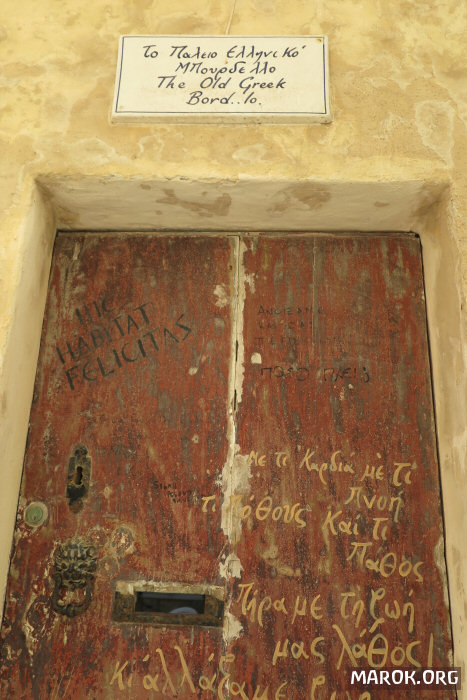 Το Παλειο Ελληνικό
Μπουρδελλο
The Old Greek
Bord..lo.
HIC
HABITAT
FELICITAS
Με τι Καρδιά με τι
πνοή
τι πόθους και τι
Παθος
Πήραμε τη ζωή
μας λάθος!
κι αλλάξαμε
MAROK.ORG